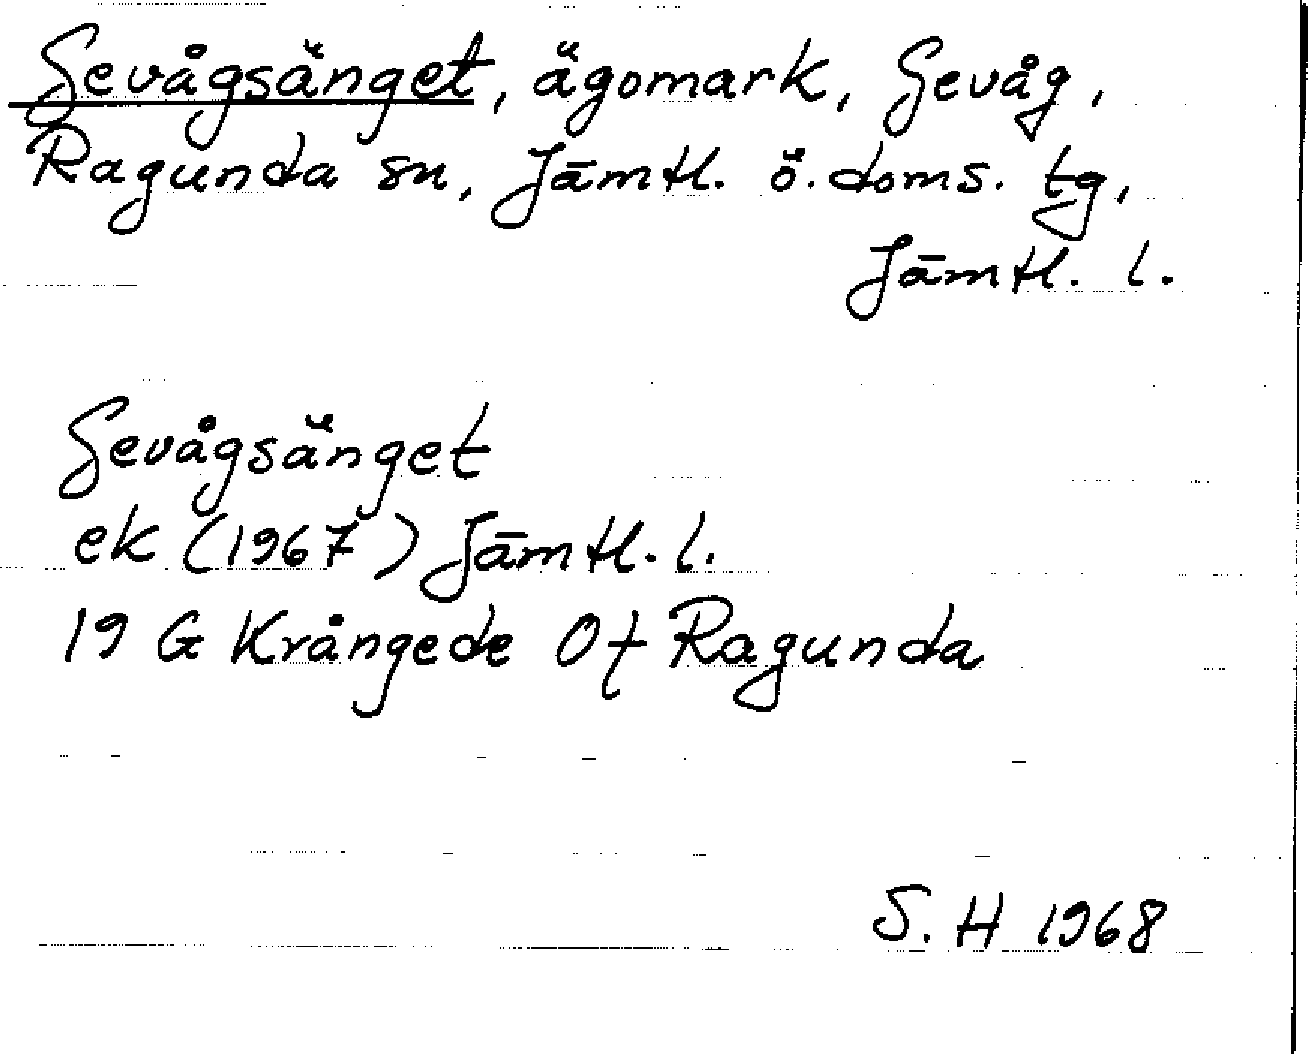 Gevågsänget, ägomark, Gevåg,
Ragunda sn, Jämtl. ö. doms. tg,
Jämtl. l.
Gevågsänget
ek (1967) Jämtl. l.
19 G Krångede Of Ragunda
S. H 1968